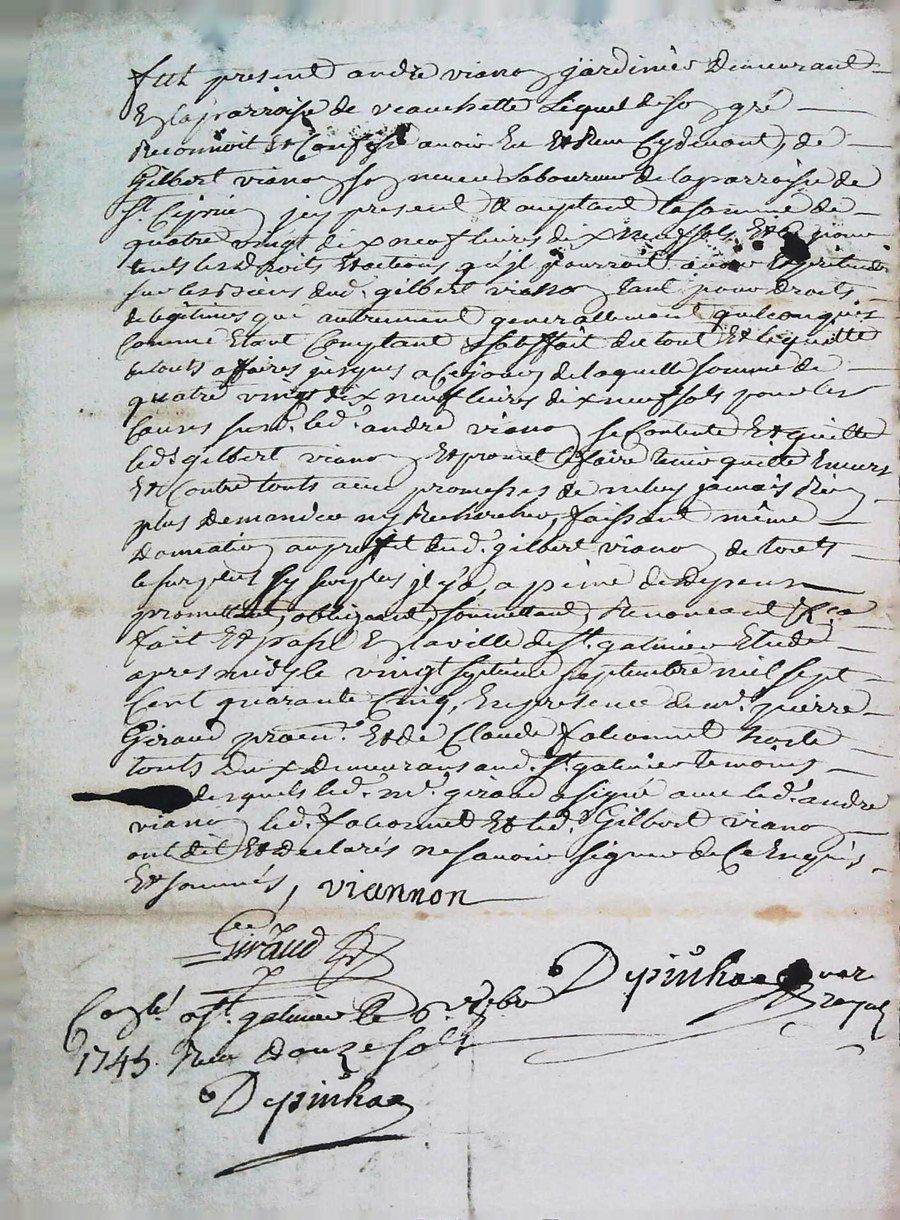 fut present andre vianon jardinier demeurant
En la parroise de veauchette Lequel de son gré
Reconnoit Et Confesse avoir Eu Et Reçu Cydevant, de
Gilbert vianon son neveu Laboureur de la parroise de
St. Ciprien jcy present Et aceptant la somme de
quatre vingt dix neuf livres dix neuf sols, Et ce pour
touts les droits Et actions qu'jl pourroit avoir Et pretendre
sur les biens dud. gilbert vianon tant pour droits
de legitimes que autrement generallement quelconques
Comme Etant Comptant Et satisfait du tout Et le quitte
de touts affaires jusques a Ce jour, de laquelle somme de
quatre vingt dix neuf livres dix neuf sols pour les
Causes susd. led. andre vianon se Contente Et quitte
led. gilbert vianon Et promet le faire tenir quitte Envers
Et Contre touts avec promesses de ne luy jamais Rien
plus demander ny Rechercher, faissant même
donnation au proffit dud. gilbert vianon de tout
le surplus sy surplus jl y a, a peine de depens
promettant, obligeant, soumettant, Renonceant &ca
fait Et passé En la ville de St. galmier Etude
apres midy le vingt septième septembre mil sept
Cent quarante Cinq, En presence de mr. pierre
Giraud procur. Et de Claude falconnet hoste
touts deux demeurans aud. St. galmier temoins
desquels led. mr. giraud a signé avec led. andre
vianon led. falconnet Et led. Gilbert vianon
ont dit Et declarés ne savoir signer de Ce Enquis
Et sommés, viannon
Giraud
Depinhac
Conlé a St. galmier le 8bre
1745. Reçu douze sols
Depinhac